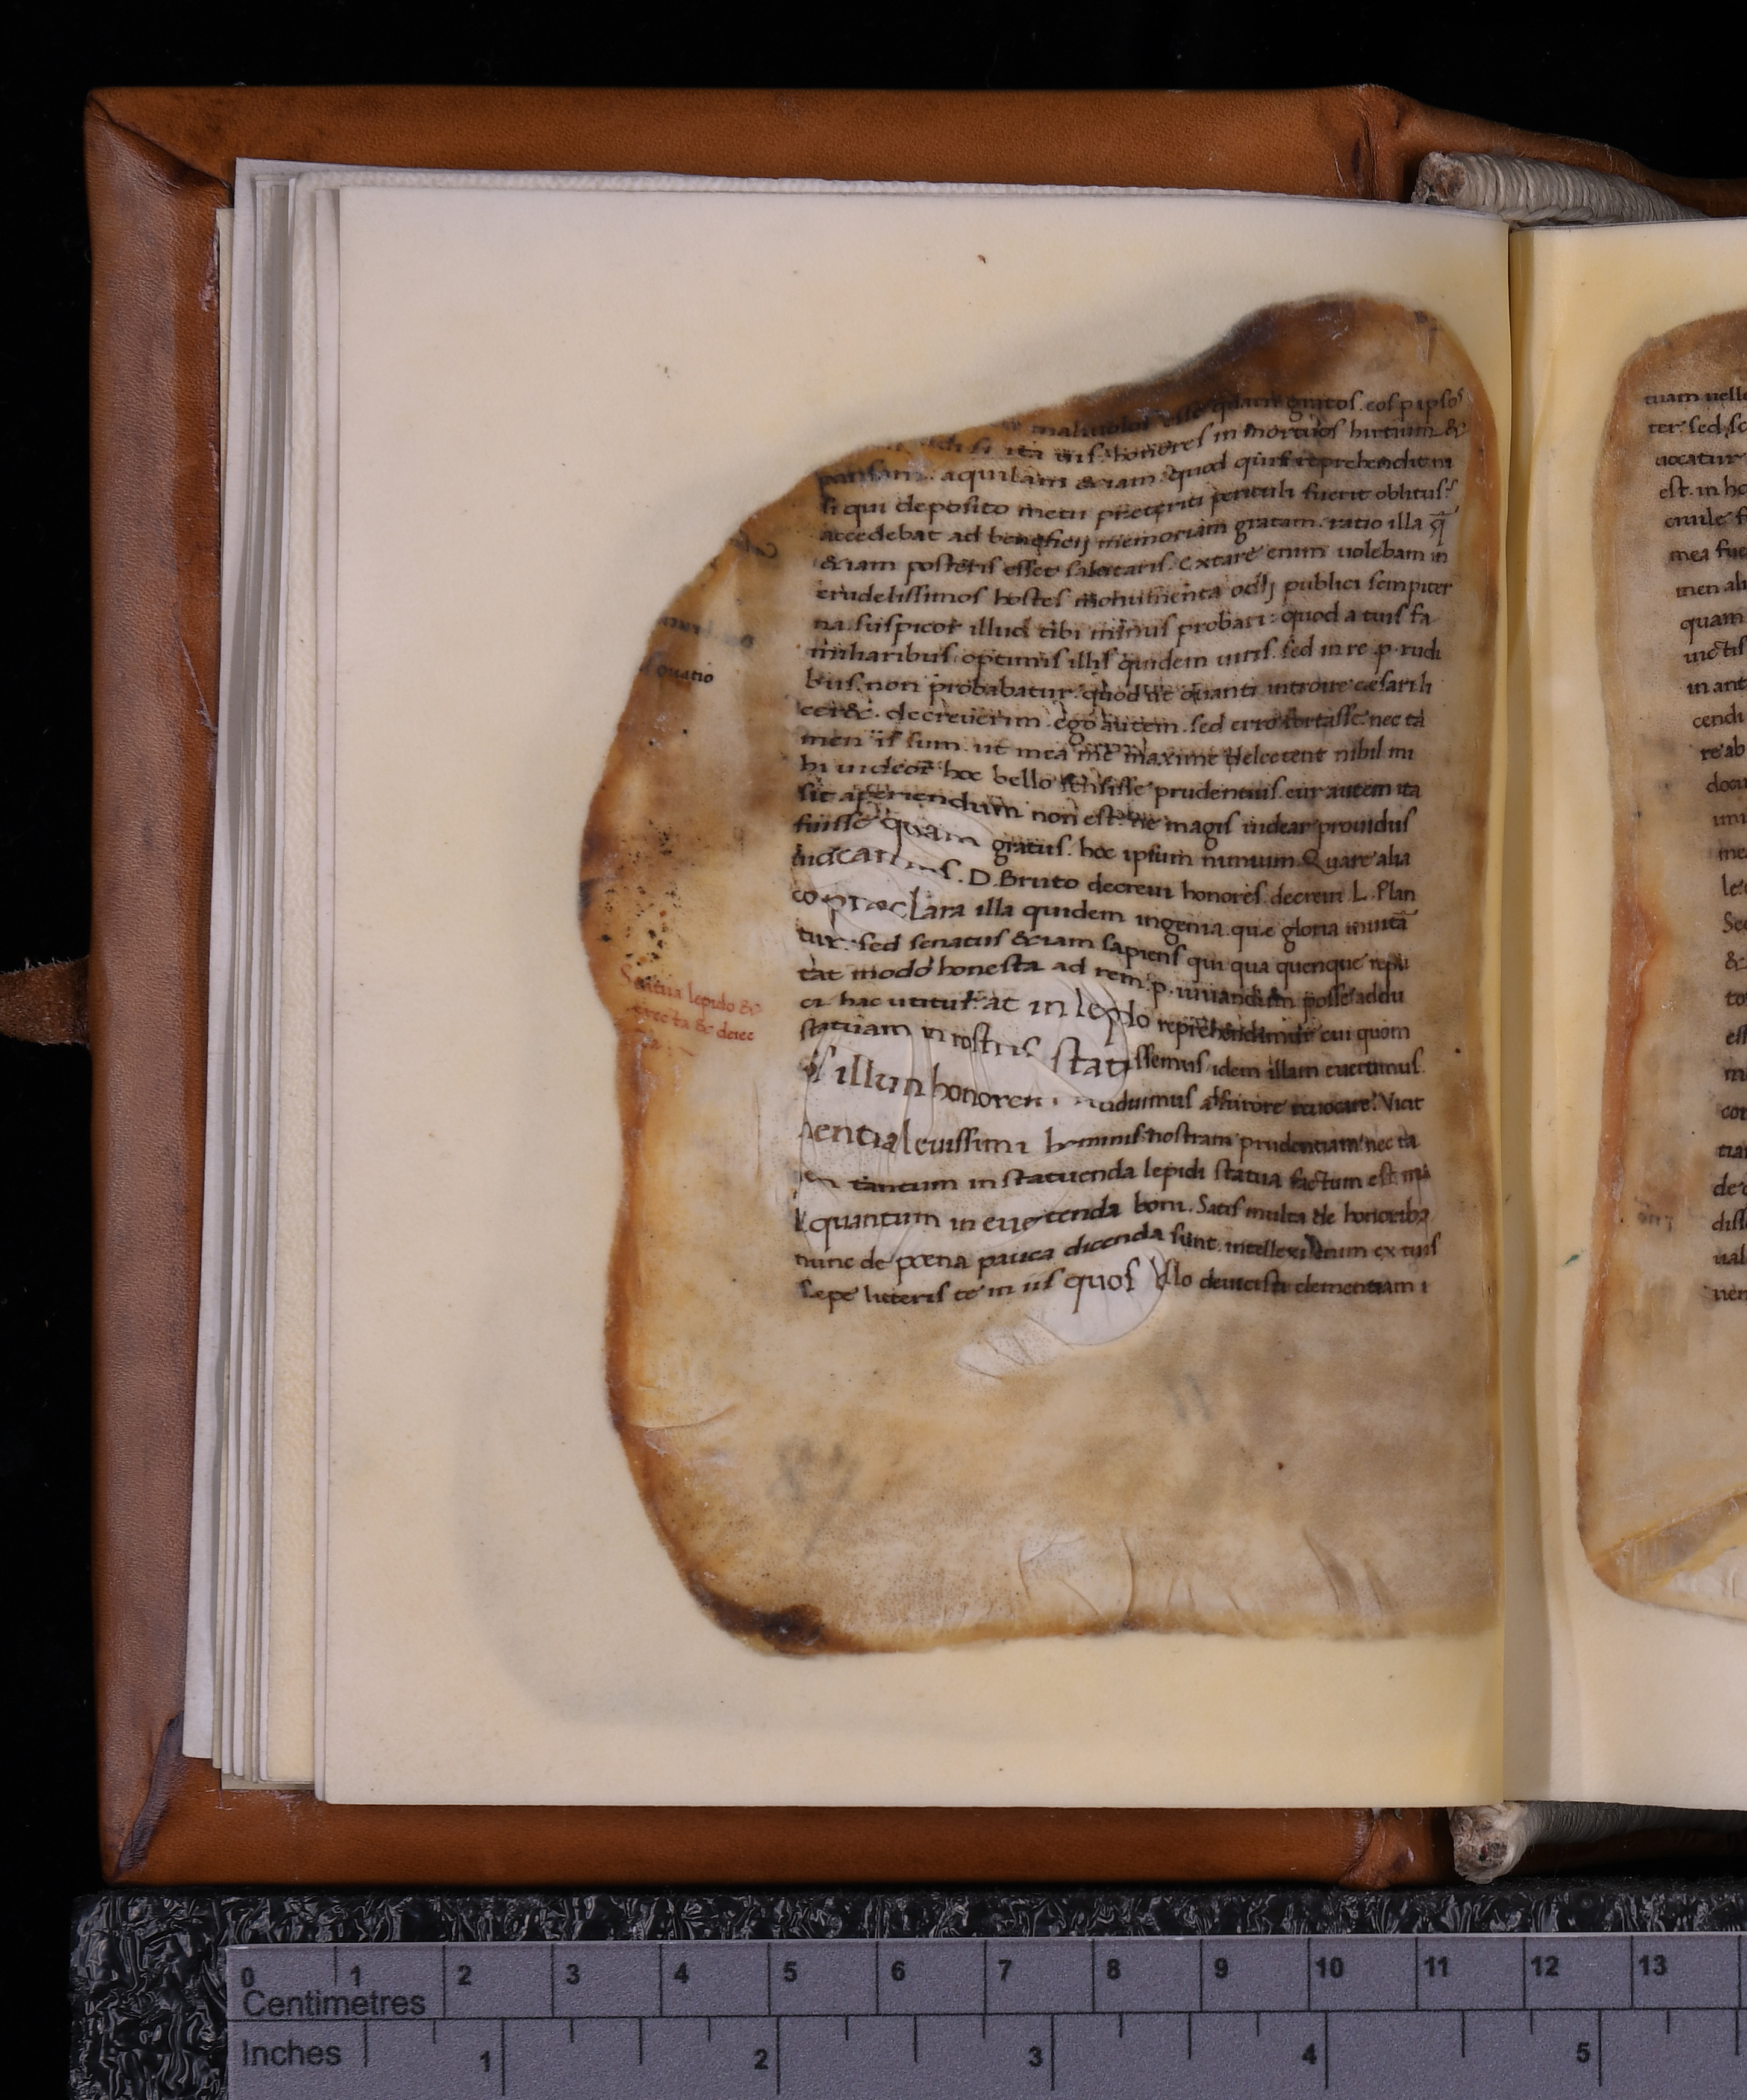 maliuolos esse quam gratos. eos p ipsos
di si ita uis. honores in mortuos hirtium &
pansam. aquilam &iam. quod quis reprehendit ni
si qui deposito metu preteriti periculi fuerit oblitus?
accedebat ad beneficij memoriam gratam. ratio illa q̄
&iam posteris esset salutaris. Extare enim uolebam in
crudelissimos hostes monumenta odij publici sempiter
na. suspicor illud tibi minus probari: quod a tuis fa
miliaribus. optimis illis quidem uiris. sed in re .p. rudi
bus. non probabatur. quod ut ouanti introire cæsari li
cer&. decreuerim. ego autem. sed erro fortasse. nec ta
men is sum. ut mea me maxime delectent nihil mi
hi uideor hoc bello sensisse prudentius. cur autem ita
sit aperiendum non est. ne magis uidear prouidus
fuisse quam gratus. hoc ipsum nimium. Quare alia
uideamus. D. Bruto decreui honores. decreui L. Plan
co præclara illa quidem ingenia. que gloria inuitā
tur. sed senatus &iam sapiens qui qua quenque repu
tat modo honesta ad rem .p. iuuandam posse addu
ci hac utitur. at in lepido reprehendimur cui quom
statuam in rostris statuissemus. idem illam euertimus.
illum honorem a furore reuocare. Vicit
mentia leuissimi hominis nostram prudentiam nec ta
men tantum in statuenda lepidi statua factum est ma
li quantum in euertenda boni. Satis multa de honoribꝫ
nunc de pœna pauca dicenda sunt. intellexi enim ex tuis
sepe litteris te in iis quos bello deuicisti clementiam
ouatio
Statua lepido &
erecta & deiec
ta
87
tuam uell
ter. sed
uocatur
est. in ho
ciuile
mea fue
men ali
quam
uictis
in ant
cendi
re ab
docu
de
diss
ual
uen
0 1 2 3 4 5 6 7 8 9 10 11 12 13
Centimetres
Inches 1 2 3 4 5